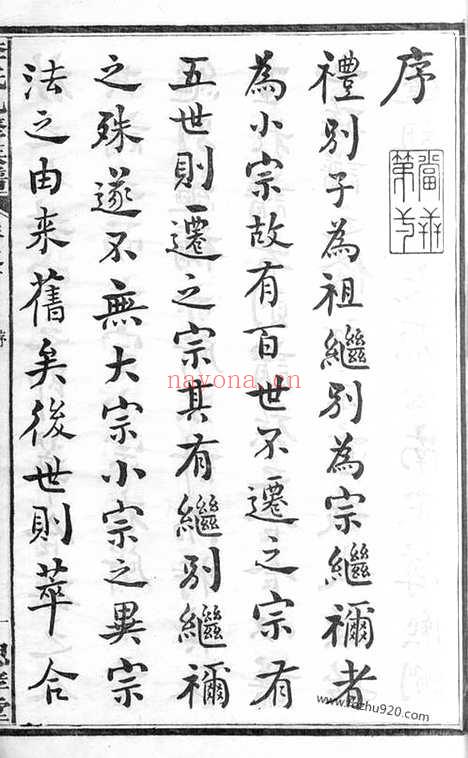 序
禮別子為祖繼別為宗繼禰者
為小宗故有百世不遷之宗有
五世則遷之宗其有繼別繼禰
之殊遂不無大宗小宗之異宗
法之由来舊矣後世則萃合
nayona.cn
www.fozhu920.com